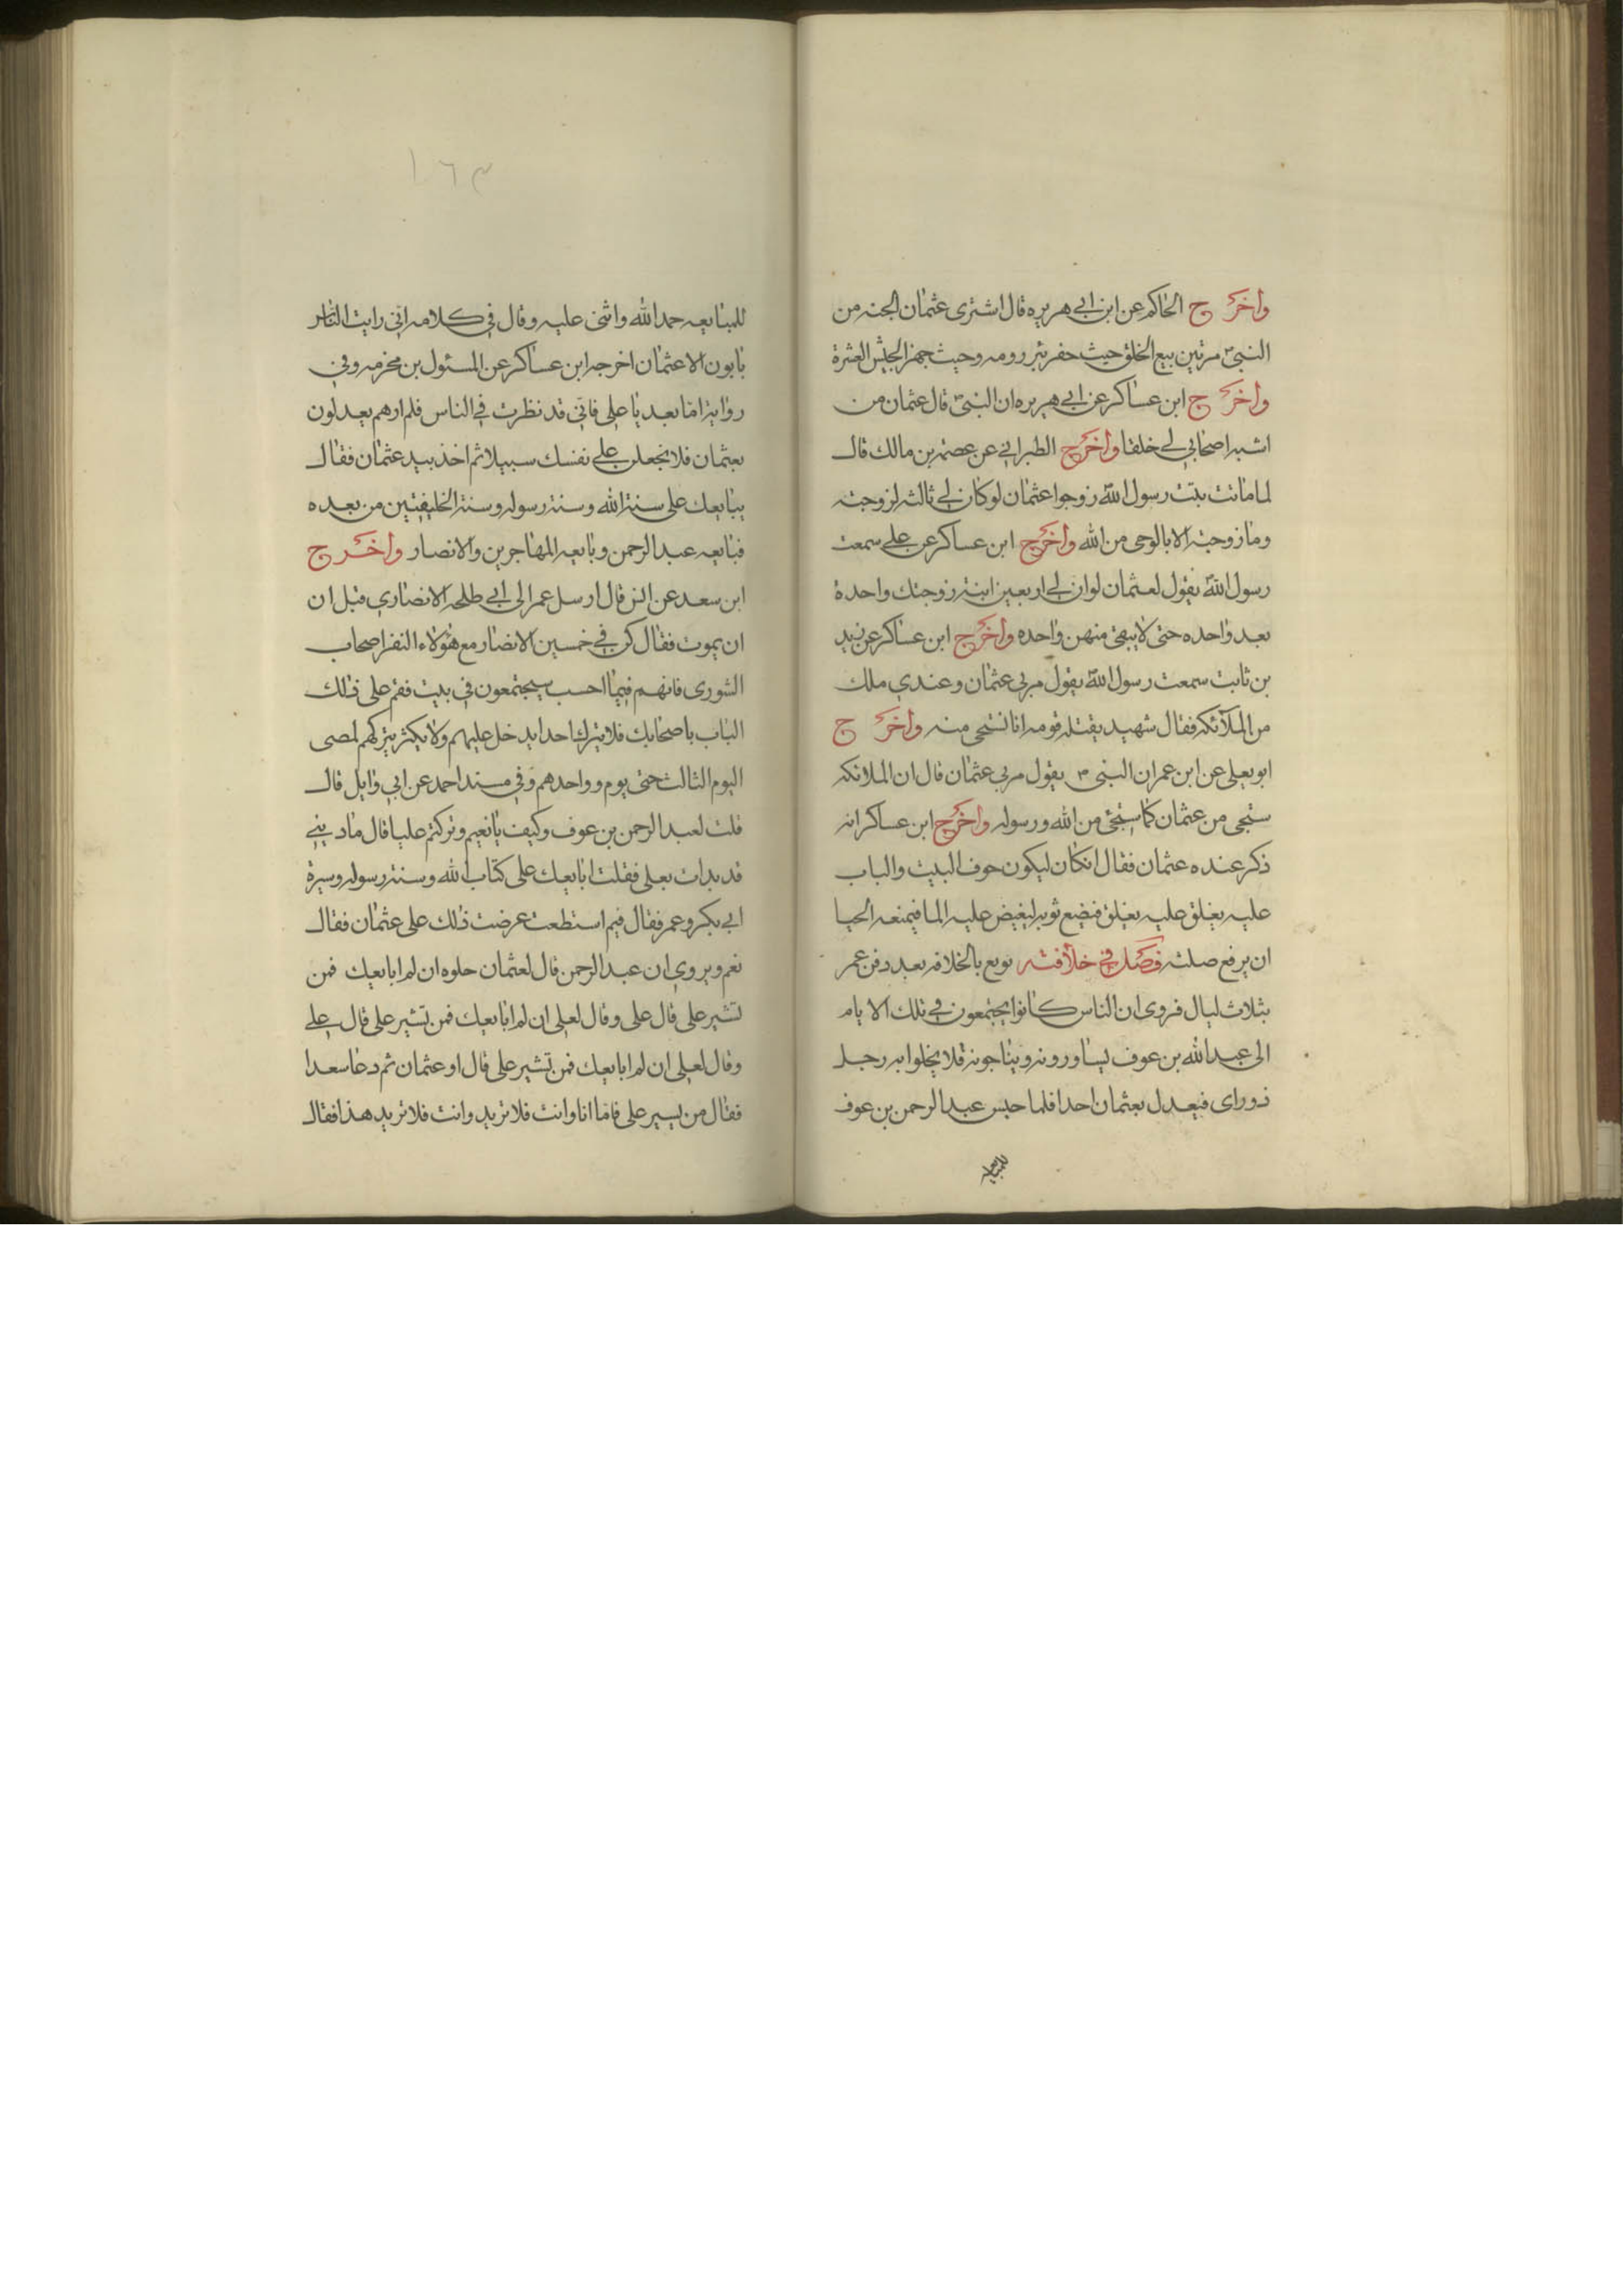 واخرج الحاكم عن ابن ابي هريره قال اشترى عثمان الجنه من
النبي مرتين بيع الخلق حيث حفر بئر رومه وحيث جهز الجيش العشرة
واخرج ابن عساكر عن ابي هريره ان النبي قال عثمان من
اشبه اصحابي لي خلقا واخرج الطبراني عن عصمة بن مالك قال
لما ماتت بنت رسول الله زوجوا عثمان لو كان لي ثالثه لزوجته
وما زوجته الا بالوحي من الله واخرج ابن عساكر عن علي سمعت
رسول الله يقول لعثمان لو ان لي اربعين ابنة زوجتك واحدة
بعد واحده حتى لا يبقى منهن واحده واخرج ابن عساكر عن زيد
بن ثابت سمعت رسول الله يقول مر بي عثمان وعندي ملك
من الملائكه فقال شهيد يقتله قومه انا نستحي منه واخرج
ابو يعلى عن ابن عمر ان النبي يقول مر بي عثمان قال ان الملائكه
ستحي من عثمان كما ستحي من الله ورسوله واخرج ابن عساكر انه
ذكر عنده عثمان فقال ان كان ليكون جوف البيت والباب
عليه يغلق عليه يغلق فيضع ثوبه ليغيض عليه الما فيمنعه الحيا
ان يرفع صلته فصل في خلافته بويع بالخلافه بعد دفن عمر
بثلاث ليال فروى ان الناس كانوا يجتمعون في تلك الايام
الى عبد الله بن عوف يساورونه ويناجونه فلا يخلوا به رجل
ذو راى فيعدل بعثمان احدا فلما جلس عبد الرحمن بن عوف
للمبايعه
١٦٣
للمبايعه حمد الله واثنى عليه وقال في كلامه اني رايت الناس
يابون الا عثمان اخرجه ابن عساكر عن المسئول بن مخرمه وفي
رواية اما بعد يا علي فاني قد نظرت في الناس فلم ارهم يعدلون
بعثمان فلا تجعلن على نفسك سبيلا ثم اخذ بيد عثمان فقال
يبايعك على سنة الله وسنة رسوله وسنة الخليفتين من بعده
فبايعه عبد الرحمن وبايعه المهاجرين والانصار واخرج
ابن سعد عن انس قال ارسل عمر الى ابي طلحه الانصاري قبل ان
ان يموت فقال كن في خمسين الانصار مع هؤلاء النفر اصحاب
الشورى فانهم فيما احسب سيجتمعون في بيت فقم على ذلك
الباب باصحابك فلا يترك احدا يدخل عليهم ولا يكثر يتركهم لمصى
اليوم الثالث حتى يوم وواحدهم وفي مسند احمد عن ابي وايل قال
قلت لعبد الرحمن بن عوف وكيف يا نعيم وتركتم عليا قال ما دينى
قد بدات بعلى فقلت ابايعك على كتاب الله وسنة رسوله وسيرة
ابي بكر وعمر فقال فيم استطعت عرضت ذلك على عثمان فقال
نعم ويروى ان عبد الرحمن قال لعثمان حلوه ان لم ابايعك فمن
تشير على قال على وقال لعلى ان لم ابايعك فمن تشير على قال على
وقال لعلى ان لم ابايعك فمن تشير على قال او عثمان ثم دعا سعدا
فقال من يسير على فاما انا وانت فلا تريد وانت فلا تريد هذا فقال